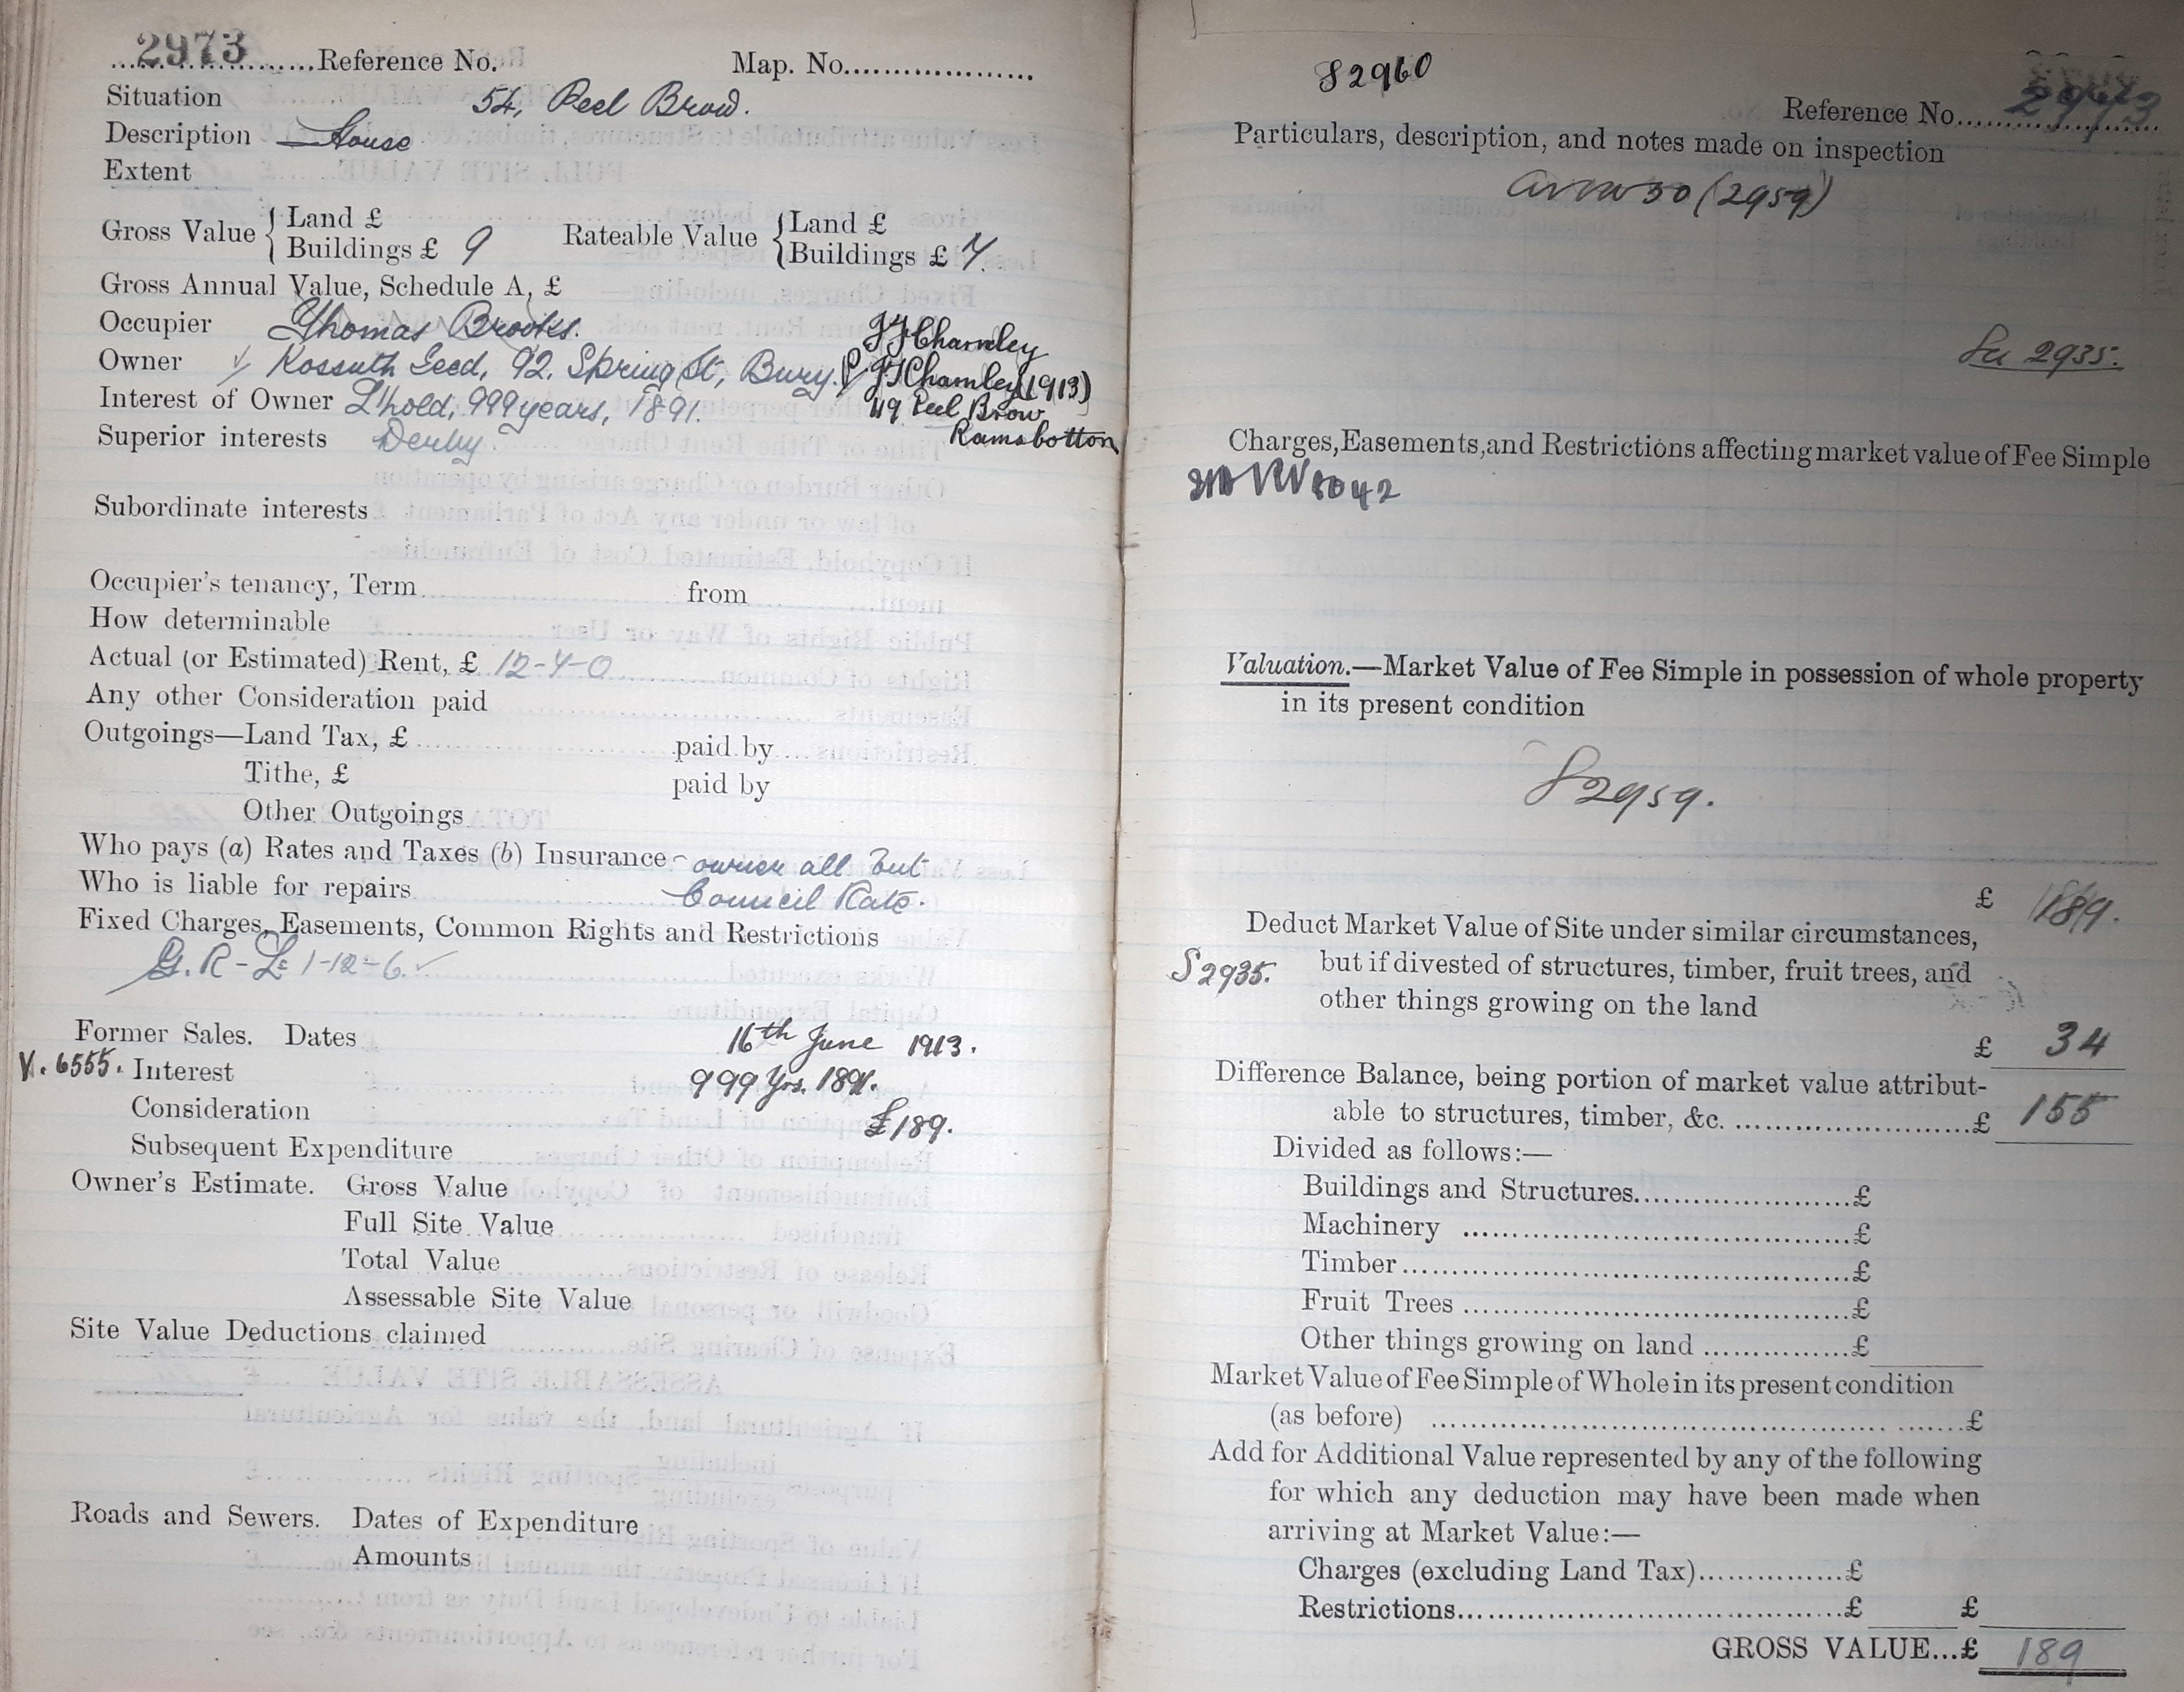 2973 Reference No. Map. No.
Situation 54, Peel Brow.
Description House
Extent
Gross Value { Land £
Buildings £ 9
Rateable Value { Land £
Buildings £ 7.
Gross Annual Value, Schedule A, £
Occupier Thomas Brooks. J T Charnley
Owner Kossuth Geed, 92, Spring St, Bury. J T Charnley (1913)
49 Peel Brow
Ramsbottom
Interest of Owner L'hold, 999 years, 1891.
Superior interests Derby
Subordinate interests
Occupier's tenancy, Term from
How determinable
Actual (or Estimated) Rent, £ 12-4-0
Any other Consideration paid
Outgoings—Land Tax, £ paid by
Tithe, £ paid by
Other Outgoings
Who pays (a) Rates and Taxes (b) Insurance - owner all but
Who is liable for repairs Council Rate.
Fixed Charges, Easements, Common Rights and Restrictions
G. R - £ 1-12-6.
Former Sales. Dates 16th June 1913.
V. 6555. Interest 999 Yrs. 1891.
Consideration £189.
Subsequent Expenditure
Owner's Estimate. Gross Value
Full Site Value
Total Value
Assessable Site Value
Site Value Deductions claimed
Roads and Sewers. Dates of Expenditure
Amounts
S 2960
Reference No. 2973
Particulars, description, and notes made on inspection
(2959)
2935.
Charges, Easements, and Restrictions affecting market value of Fee Simple
Valuation.—Market Value of Fee Simple in possession of whole property
in its present condition
S 2959.
£ 189.
Deduct Market Value of Site under similar circumstances,
S 2935. but if divested of structures, timber, fruit trees, and
other things growing on the land
£ 34
Difference Balance, being portion of market value attribut-
able to structures, timber, &c. £ 155
Divided as follows:—
Buildings and Structures £
Machinery £
Timber £
Fruit Trees £
Other things growing on land £
Market Value of Fee Simple of Whole in its present condition
(as before) £
Add for Additional Value represented by any of the following
for which any deduction may have been made when
arriving at Market Value:—
Charges (excluding Land Tax) £
Restrictions £ £
GROSS VALUE...£ 189